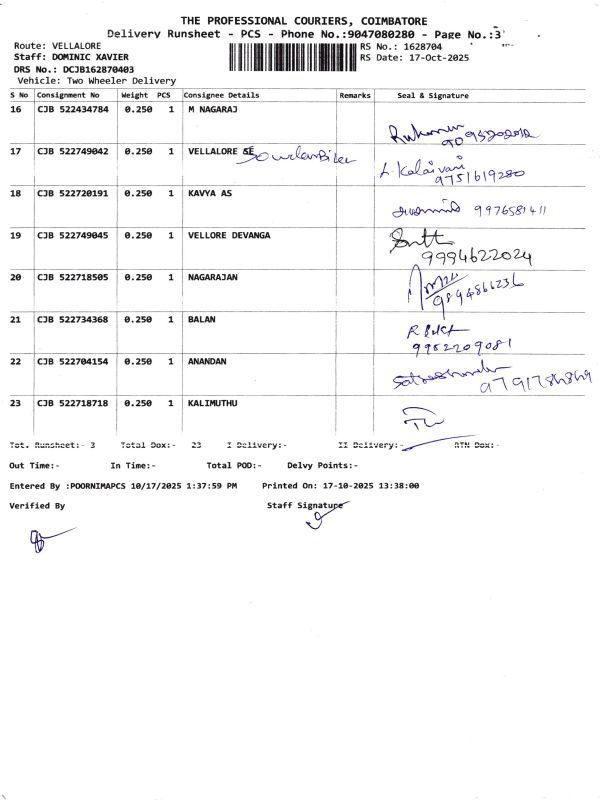 THE PROFESSIONAL COURIERS, COIMBATORE
Delivery Runsheet - PCS - Phone No.:9047080280 - Page No.:3
Route: VELLALORE RS No.: 1628704
Staff: DOMINIC XAVIER RS Date: 17-Oct-2025
DRS No.: DCJB162870403
Vehicle: Two Wheeler Delivery
S No Consignment No Weight PCS Consignee Details Remarks Seal & Signature
16 CJB 522434784 0.250 1 M NAGARAJ
17 CJB 522749042 0.250 1 VELLALORE SE
L. Kalaivani
9751619280
18 CJB 522720191 0.250 1 KAVYA AS
9976581411
19 CJB 522749045 0.250 1 VELLORE DEVANGA
9994622024
20 CJB 522718505 0.250 1 NAGARAJAN
9894866236
21 CJB 522734368 0.250 1 BALAN
9982209081
22 CJB 522704154 0.250 1 ANANDAN
23 CJB 522718718 0.250 1 KALIMUTHU
Tot. Runsheet:- 3 Total Dox:- 23 I Delivery:- II Delivery:- RTN Dox:-
Out Time:- In Time:- Total POD:- Delvy Points:-
Entered By :POORNIMAPCS 10/17/2025 1:37:59 PM Printed On: 17-10-2025 13:38:00
Verified By Staff Signature